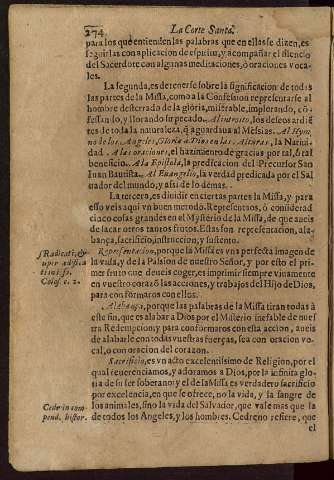 274 La Corte Santa.
para los que entienden las palabras que en ella se dizen, es
seguirlas con aplicacion de espiritu, y acompañar el silencio
del Sacerdote con algunas meditaciones, ò oraciones voca-
les.
La segunda, es detenerse sobre la significacion de todas
las partes de la Missa, como a la Confession representarse al
hombre desterrado de la gloria, miserable, implorando, cõ-
fessando, y llorando su pecado. Al introito, los deseos ardiẽ
tes de toda la naturaleza, q̃ aguardaua al Messias. Al Hym
no de los Angeles, Gloria a Dios en las Alturas, la Natiui-
dad. A las oraciones, el hazimiento de gracias por tal, õ tal
beneficio. A la Epistola, la predicacion del Precursor San
Iuan Bautista. Al Euangelio, la verdad predicada por el Sal
uador del mundo, y assi de lo demas.
La tercera, es diuidir en ciertas partes la Missa, y para
esso veis aqui vn buen metodo. Representaos, ò considerad
cinco cosas grandes en el Mysterio de la Missa, de que aueis
de sacar otros tantos frutos. Estas son representacion, ala-
bança, sacrificio, instruccion, y sustento.
Representacion, porque la Missa es vna perfecta imagen de
la vida, y de la Passion de nuestro Señor, y por esto el pri-
mer fruto que deueis coger, es imprimir siempre viuamente
en vuestro coraçõ las acciones, y trabajos del Hijo de Dios,
para conformaros con ellos.
Alabança, porque las palabras de la Missa tiran todas à
este fin, que es alabar a Dios por el Misterio inefable de nues
tra Redempcion; y para conformaros con esta accion, aueis
de alabarle con todas vuestras fuerças, sea con oracion vo-
cal, o con oracion del corazon.
Sacrificio, es vn acto excelentissimo de Religion, por el
qual reuerenciamos, y adoramos a Dios, por la infinita glo-
ria de su ser soberano; y el de la Missa es verdadero sacrificio
por excelencia, en que se ofrece, no la vida, y la sangre de
los animales, sino la vida del Saluador, que vale mas que la
de todos los Angeles, y los hombres. Cedreno refiere, que
el
Radicati, &
super ædifica
ti in ipso.
Colos. c. 2.
Cedr. in com
pend. histor.